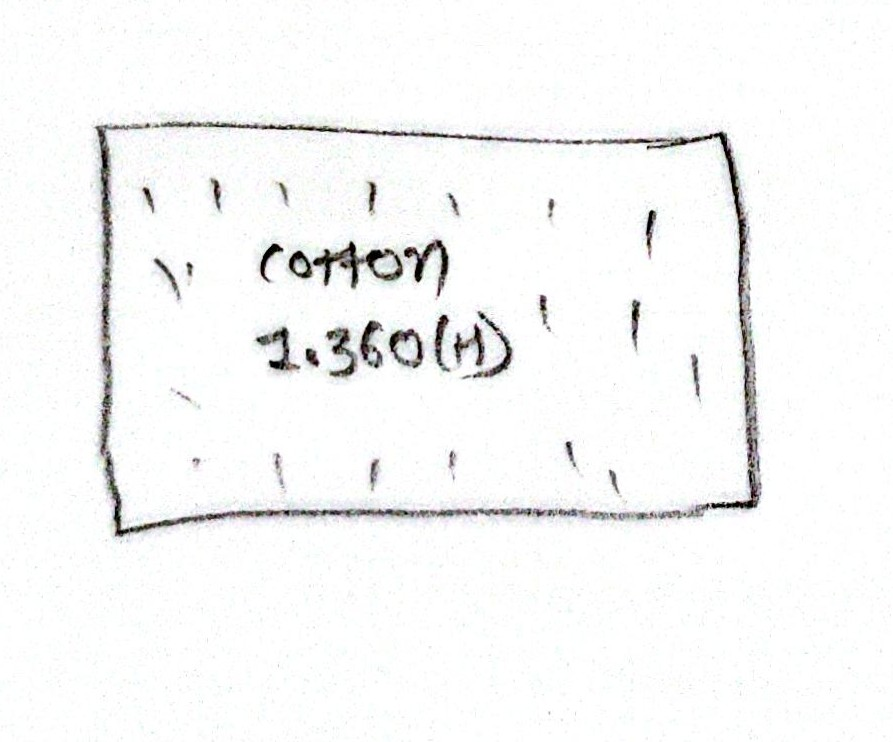 cotton
1.360(H)